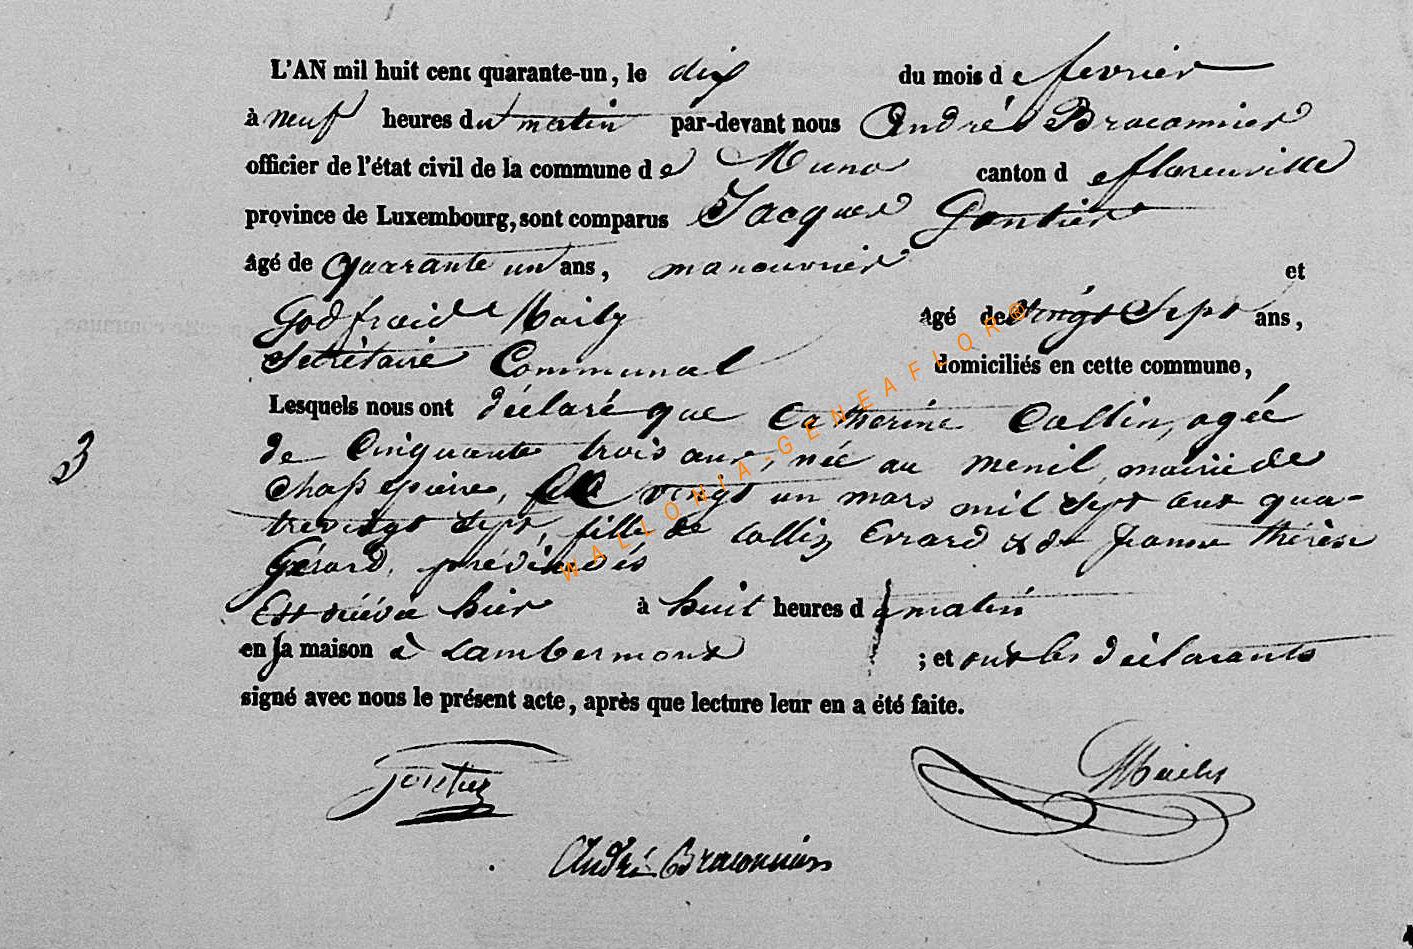 L'AN mil huit cent quarante-un, le dix du mois de fevrier
à neuf heures du matin par-devant nous André Braconnier
officier de l'état civil de la commune de Muno canton de florenville
province de Luxembourg, sont comparus Jacques Gontier
âgé de quarante un ans, manouvrier et
Godfroid Maily âgé de vingt sept ans,
secrétaire Communal domiciliés en cette commune,
Lesquels nous ont déclaré que Catherine Collin, agée
3
de Cinquante trois ans, née au menil mairie de
chassepierre, le vingt un mars mil sept cent qua-
trevingt sept, fille de Collin Errard & de Jeanne thérèse
Gérard, prédécédés
Est décédée hier à huit heures d matin
en sa maison à Lambermont ; et ont les déclarants
signé avec nous le présent acte, après que lecture leur en a été faite.
Gontier
André Braconnier
WALLONIA-GENEAFLOR®